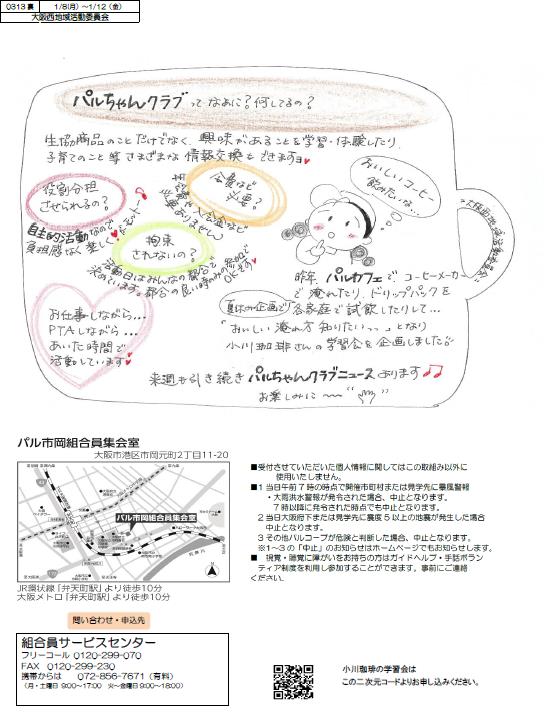 0313 裏 1/8(月) ～1/12 (金)
大阪西地域活動委員会
パルちゃんクラブ ってなあに？何してるの？
生協商品のことだけでなく、興味があることを学習・体験したり、
子育てのこと等さまざまな情報交換もできますヨ♥
役割分担
させられるの？
自主的活動なので
負担感なく楽しく
会費など
必要？
入会金など
必要ありません
拘束
されないの？
活動日はみんなの都合で
決めています。都合の良い時のみの参加で
OKです
おいしいコーヒー
飲みたいな…
大阪西地域活動委員会
昨年、パルカフェで、コーヒーメーカー
で淹れたり、ドリップパックを
各家庭で試飲したりして…
夏休み企画で
“おいしい淹れ方 知りたいっっ”となり
小川珈琲さんの学習会を企画しました
お仕事しながら…
PTAしながら…
あいた時間で
活動しています♥
来週も引き続きパルちゃんクラブニュースあります♫
お楽しみに～
パル市岡組合員集会室
大阪市港区市岡元町2丁目11-20
パル市岡組合員集会室
JR環状線「弁天町駅」より徒歩10分
大阪メトロ「弁天町駅」より徒歩10分
■受付させていただいた個人情報に関してはこの取組み以外に
使用いたしません。
■1 当日午前７時の時点で開催市町村または見学先に暴風警報
・大雨洪水警報が発令された場合、中止となります。
７時以降に発令された時点でも中止となります。
2 当日大阪府下または見学先に震度５以上の地震が発生した場合
中止となります。
3 その他パルコープが危険と判断した場合、中止となります。
※1～3の「中止」のお知らせはホームページでもお知らせします。
■ 視覚・聴覚に障がいをお持ちの方はガイドヘルプ・手話ボラン
ティア制度を利用し参加することができます。事前にご連絡
ください。
問い合わせ・申込先
組合員サービスセンター
フリーコール 0120-299-070
FAX 0120-299-230
携帯からは 072-856-7671（有料）
（月・土曜日 9:00～17:00 火～金曜日 9:00～18:00）
小川珈琲の学習会は
この二次元コードよりお申し込みください。